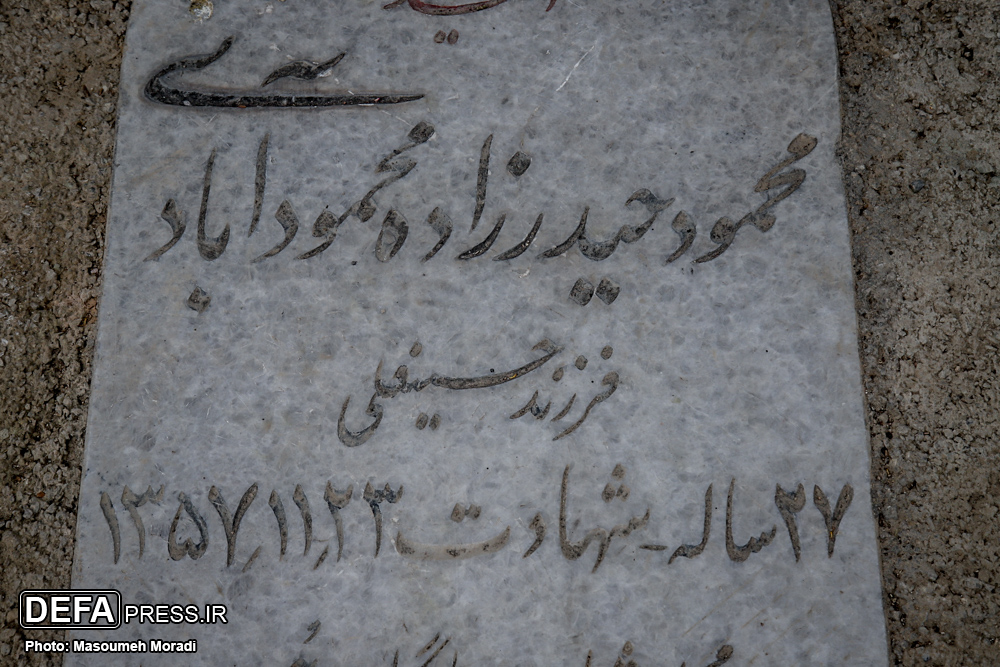 محمود حیدرزاده محمودآبادی
فرزند حسینقلی
۲۷ ساله - شهادت ۱۳۵۷٫۱۱٫۲۳
DEFAPRESS.IR
Photo: Masoumeh Moradi